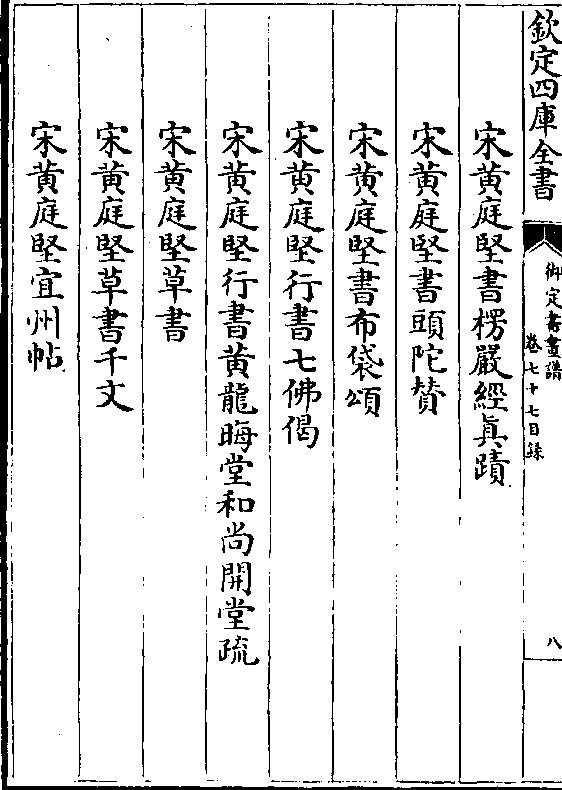 欽定四庫全書
御定書畫譜
卷七十七目錄
八
宋黄庭堅書楞嚴經眞蹟
宋黄庭堅書頭陀賛
宋黄庭堅書布袋頌
宋黄庭堅行書七佛偈
宋黄庭堅行書黄龍晦堂和尚開堂疏
宋黄庭堅草書
宋黄庭堅草書千文
宋黄庭堅宜州帖